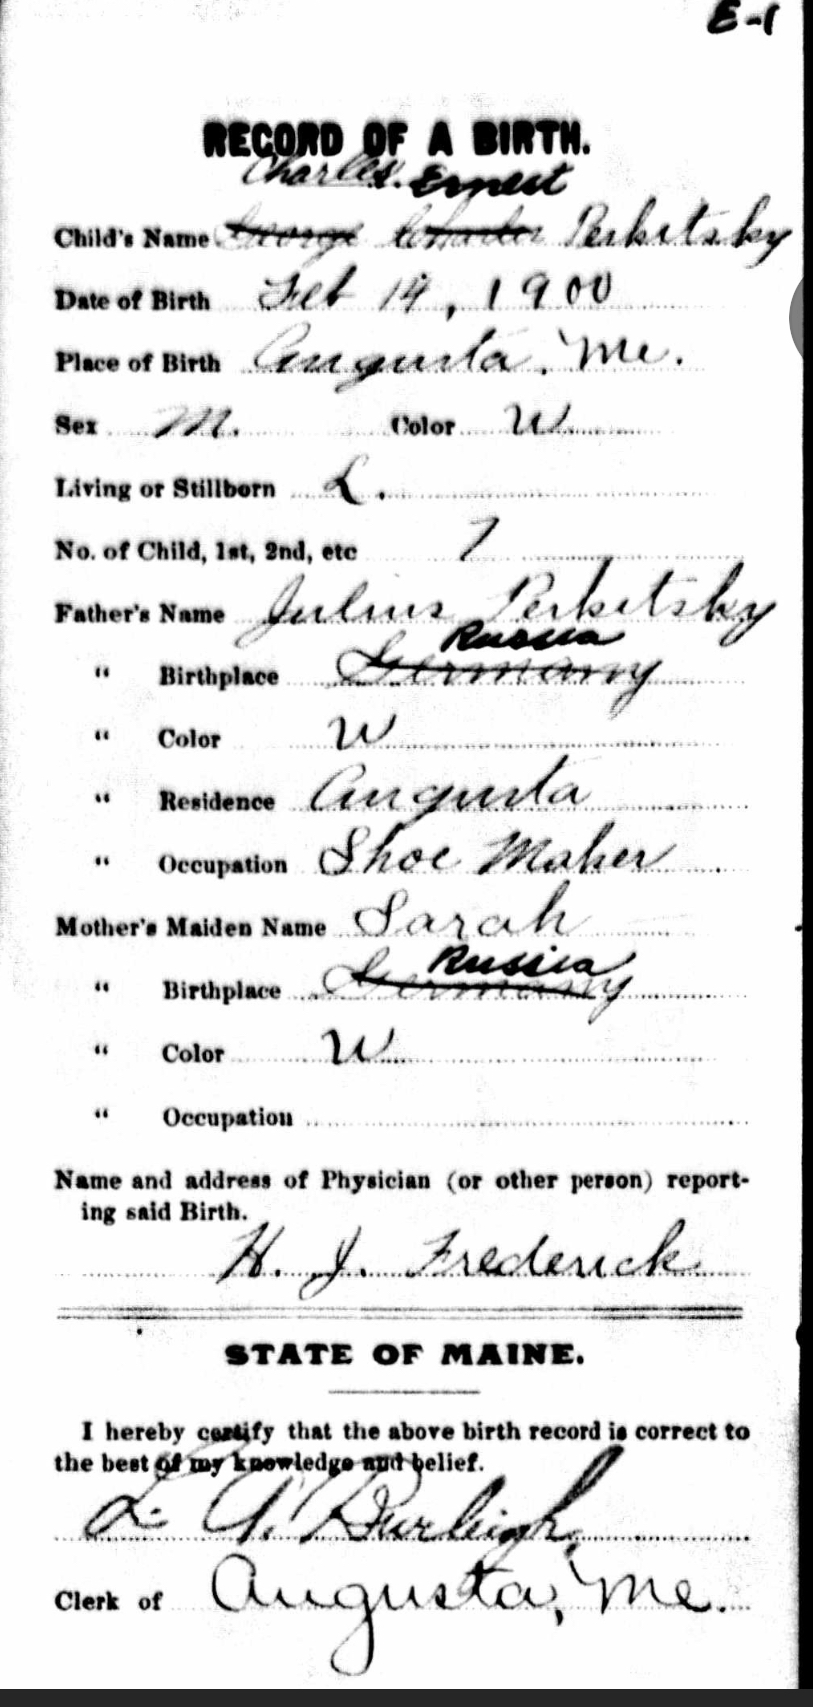 E-1
RECORD OF A BIRTH.
Charles. Ernest
Child's Name George Charles Perkitsky
Date of Birth Feb 14, 1900
Place of Birth Augusta, Me.
Sex M. Color W
Living or Stillborn L.
No. of Child, 1st, 2nd, etc 7
Father's Name Julius Perkitsky
Russia
" Birthplace Germany
" Color W
" Residence Augusta
" Occupation Shoe Maker
Mother's Maiden Name Sarah
Russia
" Birthplace Germany
" Color W
" Occupation
Name and address of Physician (or other person) report-
ing said Birth.
H. J. Frederick
STATE OF MAINE.
I hereby certify that the above birth record is correct to
the best of my knowledge and belief.
L. A. Burleigh,
Clerk of Augusta, Me.